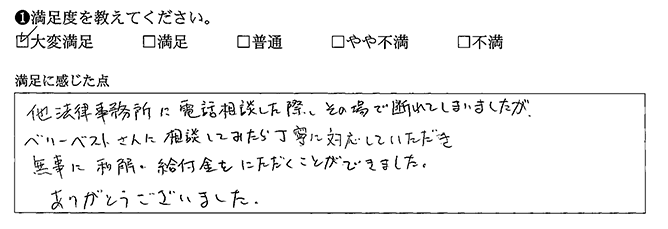 ❶満足度を教えてください。
☑大変満足 □満足 □普通 □やや不満 □不満
満足に感じた点
他法律事務所に電話相談した際、その場で断れてしまいましたが、
ベリーベストさんに相談してみたら丁寧に対応していただき
無事に和解・給付金をいただくことができました。
ありがとうございました。